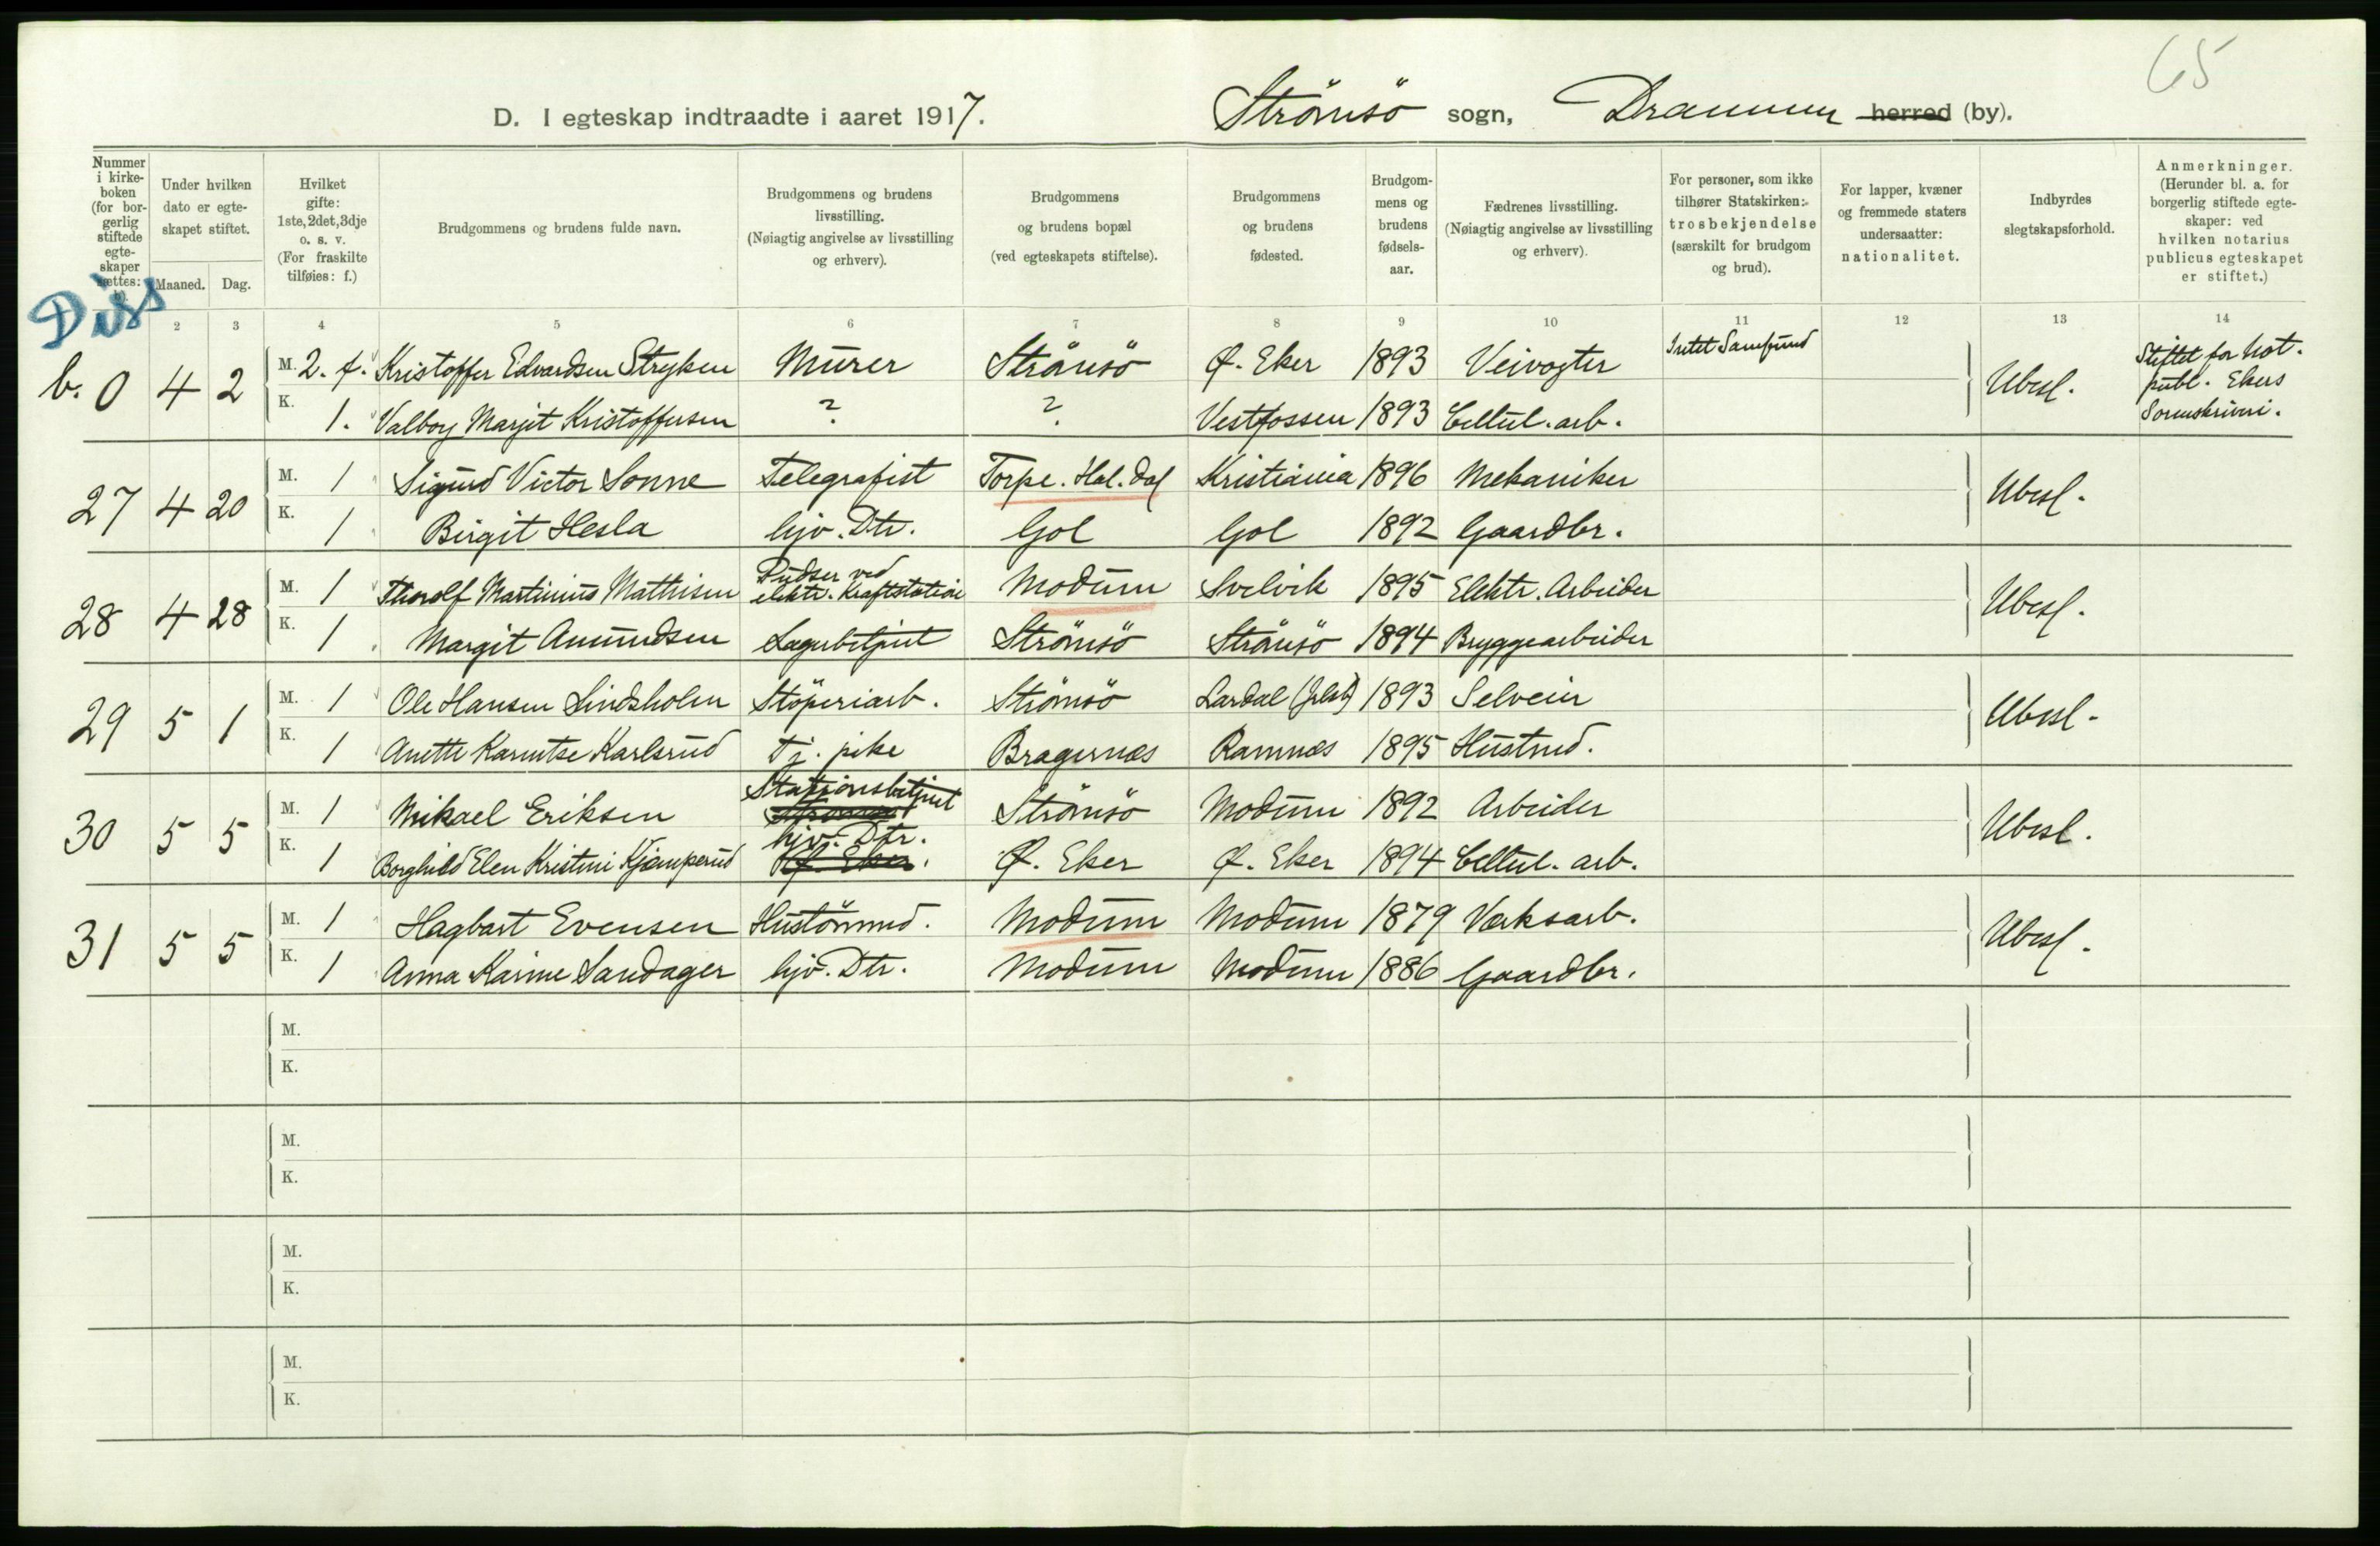 65
D. I egteskap indtraadte i aaret 1917. Strömsö sogn, Drammen herred (by).
Nummer i kirkeboken (for borgerlig stiftede egteskaper sættes: b).
Under hvilken dato er egteskapet stiftet.
Maaned. Dag.
Hvilket gifte: 1ste, 2det, 3dje o. s. v. (For fraskilte tilføies: f.)
Brudgommens og brudens fulde navn.
Brudgommens og brudens livsstilling. (Nøiagtig angivelse av livsstilling og erhverv).
Brudgommens og brudens bopæl (ved egteskapets stiftelse).
Brudgommens og brudens fødested.
Brudgommens og brudens fødselsaar.
Fædrenes livsstilling. (Nøiagtig angivelse av livsstilling og erhverv).
For personer, som ikke tilhører Statskirken: trosbekjendelse (særskilt for brudgom og brud).
For lapper, kvæner og fremmede staters undersaatter: nationalitet.
Indbyrdes slegtskapsforhold.
Anmerkninger. (Herunder bl. a. for borgerlig stiftede egteskaper: ved hvilken notarius publicus egteskapet er stiftet.)
Diss
2 3 4 5 6 7 8 9 10 11 12 13 14
b. 0 4 2 M. 2. f. Kristoffer Edvardsen Stryken Murer Strömsö Ø. Eker 1893 Veivogter Intet Samfund Ubesl. Stiftet for Not. publ. Ekers Sorenskriveri.
K. 1. Valborg Margit Kristoffersen ? ? Vestfossen 1893 Cellul. arb.
27 4 20 M. 1 Sigurd Victor Sonne Telegrafist Torpe. Hal. dal Kristiania 1896 Mekaniker Ubesl.
K. 1 Birgit Hesla hjv. Dtr. Gol Gol 1892 Gaardbr.
28 4 28 M. 1 Thorolf Martinius Mathisen Pudser ved elektr. Kraftstation Modum Svelvik 1895 Elektr. Arbeider Ubesl.
K. 1 Margit Amundsen Lagerbetjent Strömsö Strömsö 1894 Bryggearbeider
29 5 1 M. 1 Ole Hansen Lindsholm Stöperiarb. Strömsö Lardal (Jrlsb) 1893 Selveier Ubesl.
K. 1 Anette Karentse Karlsrud Tj. pike Bragernæs Ramnæs 1895 Hustred.
30 5 5 M. 1 Mikael Eriksen Stationsbetjent Strömsö Modum 1892 Arbeider Ubesl.
K. 1 Borghild Elen Kristine Kjemperud hjv. Dtr. Ø. Eker Ø. Eker 1894 Cellul. arb.
31 5 5 M. 1 Hagbart Evensen Hustömmed. Modum Modum 1879 Værksarb. Ubesl.
K. 1 Anna Karine Sandager hjv. Dtr. Modum Modum 1886 Gaardbr.
M.
K.
M.
K.
M.
K.
M.
K.